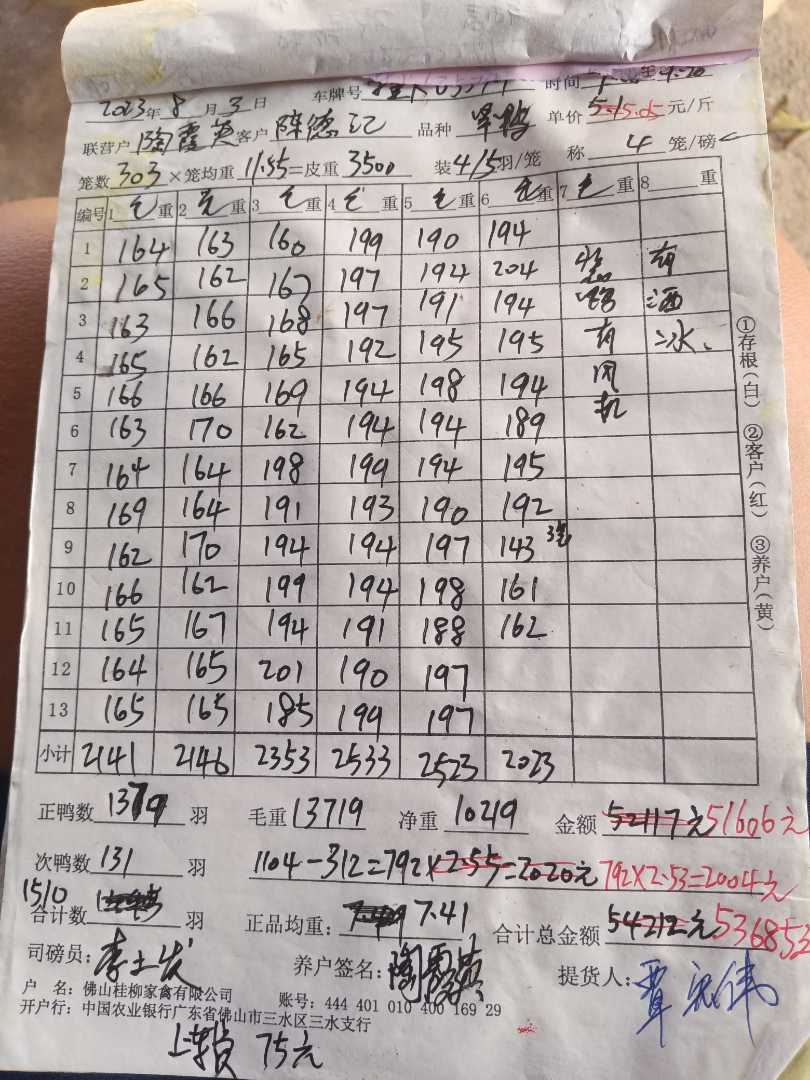 2023年8月3日 车牌号 时间
联营户 陶霞英 客户 陈德记 品种 单价 5.1 5.05 元/斤
笼数 303 ×笼均重 11.55 =皮重 3500 装 4/5 羽/笼 称 4 笼/磅
编号 1 毛重 2 毛重 3 毛重 4 毛重 5 毛重 6 毛重 7 毛重 8 重
1 164 163 160 199 190 194
2 165 162 167 197 194 204 有
3 163 166 168 197 191 194 洒
4 165 162 165 192 195 195 有 冰
5 166 166 169 194 198 194 风
6 163 170 162 194 194 189 机
7 164 164 198 199 194 195
8 169 164 191 193 190 192
9 162 170 194 194 197 143 3笼
10 166 162 199 194 198 161
11 165 167 194 191 188 162
12 164 165 201 190 197
13 165 165 185 199 197
小计 2141 2146 2353 2533 2523 2023
①存根(白) ②客户(红) ③养户(黄)
正鸭数 1379 羽 毛重 13719 净重 10219 金额 52117元 51606元
次鸭数 131 羽 1104-312=792×2.55=2020元 792×2.53=2004元
合计数 1510 羽 正品均重: 7.41 合计总金额 54212元 536853
司磅员: 李土发 养户签名: 陶霞英 提货人: 覃
户 名: 佛山桂柳家禽有限公司 账号: 444 401 010 400 169 29
开户行: 中国农业银行广东省佛山市三水区三水支行
上车损 75元